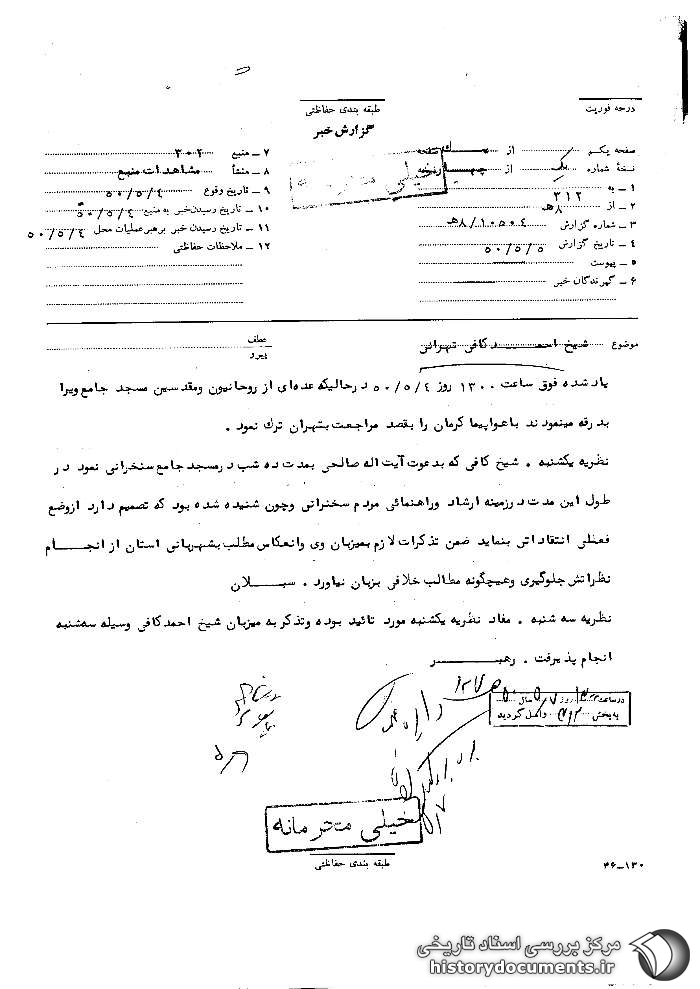 درجه فوریت
طبقه بندی حفاظتی
گزارش خبر
خیلی محرمانه
صفحه یکم از یک صفحه
نسخهٔ شماره یک از چهار نسخه
۱ ـ به ۳۱۲
۲ ـ از ۸هـ
۳ ـ شماره گزارش ۸/۱۰۵۰۴هـ
۴ ـ تاریخ گزارش ۵۰/۵/۵
۵ ـ پیوست
۶ ـ گیرندگان خبر
۷ ـ منبع ۳۰۲
۸ ـ منشأ مشاهدات منبع
۹ ـ تاریخ وقوع ۵۰/۵/۴
۱۰ ـ تاریخ رسیدن خبر به منبع ۵۰/۵/۴
۱۱ ـ تاریخ رسیدن خبر برهبر عملیات محل ۵۰/۵/۴
۱۲ ـ ملاحظات حفاظتی
موضوع شیخ احمد کافی تهرانی
عطف
پیرو
یاد شده فوق ساعت ۱۳۰۰ روز ۵۰/۵/۴ در حالیکه عده‌ای از روحانیون و مقدسین مسجد جامع ویرا
بدرقه مینمودند با هواپیما کرمان را بقصد مراجعت بتهران ترك نمود .
نظریه یکشنبه . شیخ کافی که بدعوت آیت اله صالحی بمدت ده شب در مسجد جامع سخنرانی نمود در
طول این مدت در زمینه ارشاد وراهنمائی مردم سخنرانی وچون شنیده شده بود که تصمیم دارد ازوضع
فعلی انتقاداتی بنماید ضمن تذکرات لازم بمیزبان وی وانعکاس مطلب بشهربانی استان از انجام
نظراتش جلوگیری وهیچگونه مطالب خلافی بزبان نیاورد . سبلان
نظریه سه شنبه . مفاد نظریه یکشنبه مورد تائید بوده وتذکر به میزبان شیخ احمد کافی وسیله سه‌شنبه
انجام پذیرفت . رهبر
در ساعت روز ۵/۷ سال ۵۰
به بخش ۳۱۲ واصل گردید
خیلی محرمانه
طبقه بندی حفاظتی
۱۳۰ـ۳۶
مرکز بررسی اسناد تاریخی
historydocuments.ir